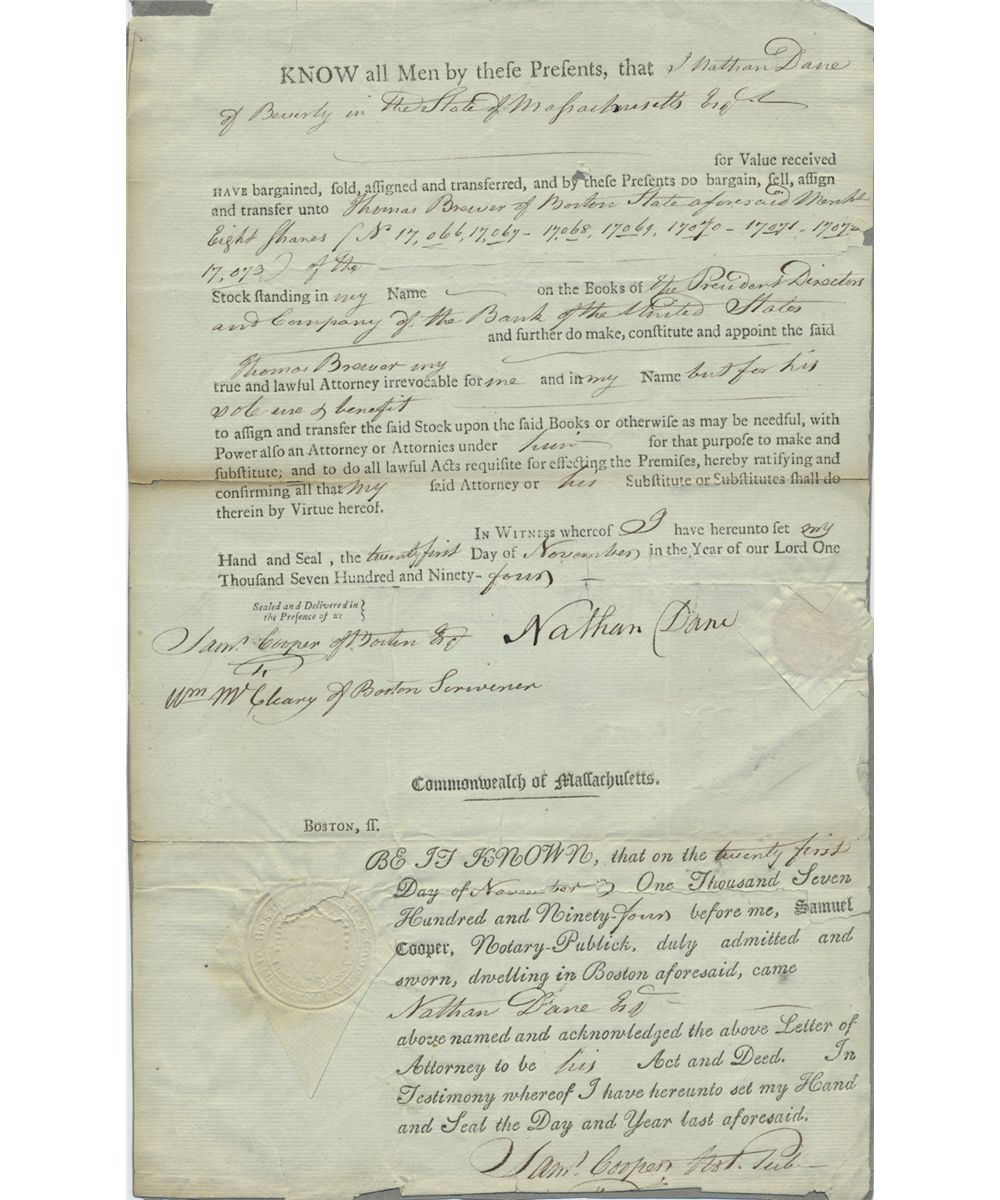 KNOW all Men by theſe Preſents, that I Nathan Dane
of Beverly in the State of Maſsachusetts Esqr
for Value received
HAVE bargained, ſold, aſſigned and transferred, and by theſe Preſents DO bargain, ſell, aſſign
and transfer unto Thomas Brewer of Boston State aforesaid Mercht
Eight Shares (No 17,066, 17,067 - 17,068, 17069, 17070 - 17071 - 17072
17,073) of the
Stock ſtanding in my Name on the Books of the President Directors
and Company of the Bank of the United States
and further do make, conſtitute and appoint the ſaid
Thomas Brewer my
true and lawful Attorney irrevocable for me and in my Name but for his
sole use & benefit
to aſſign and transfer the ſaid Stock upon the ſaid Books or otherwiſe as may be needful, with
Power alſo an Attorney or Attornies under him for that purpoſe to make and
ſubſtitute; and to do all lawful Acts requiſite for effecting the Premiſes, hereby ratifying and
confirming all that my ſaid Attorney or his Subſtitute or Subſtitutes ſhall do
therein by Virtue hereof.
IN WITNESS whereof I have hereunto ſet my
Hand and Seal, the twenty first Day of November in the Year of our Lord One
Thouſand Seven Hundred and Ninety-four
Sealed and Delivered in
the Preſence of us
Saml. Cooper of Boston Esqr
Nathan Dane
Wm McCleary of Boston Scrivener
Commonwealth of Maſſachuſetts.
BOSTON, ſſ.
BE IT KNOWN, that on the twenty first
Day of November One Thouſand Seven
Hundred and Ninety-four before me, Samuel
Cooper, Notary-Publick, duly admitted and
ſworn, dwelling in Boſton aforeſaid, came
Nathan Dane Esqr
above named and acknowledged the above Letter of
Attorney to be his Act and Deed. In
Teſtimony whereof I have hereunto ſet my Hand
and Seal the Day and Year laſt aforeſaid.
Saml. Cooper Not. Pub.